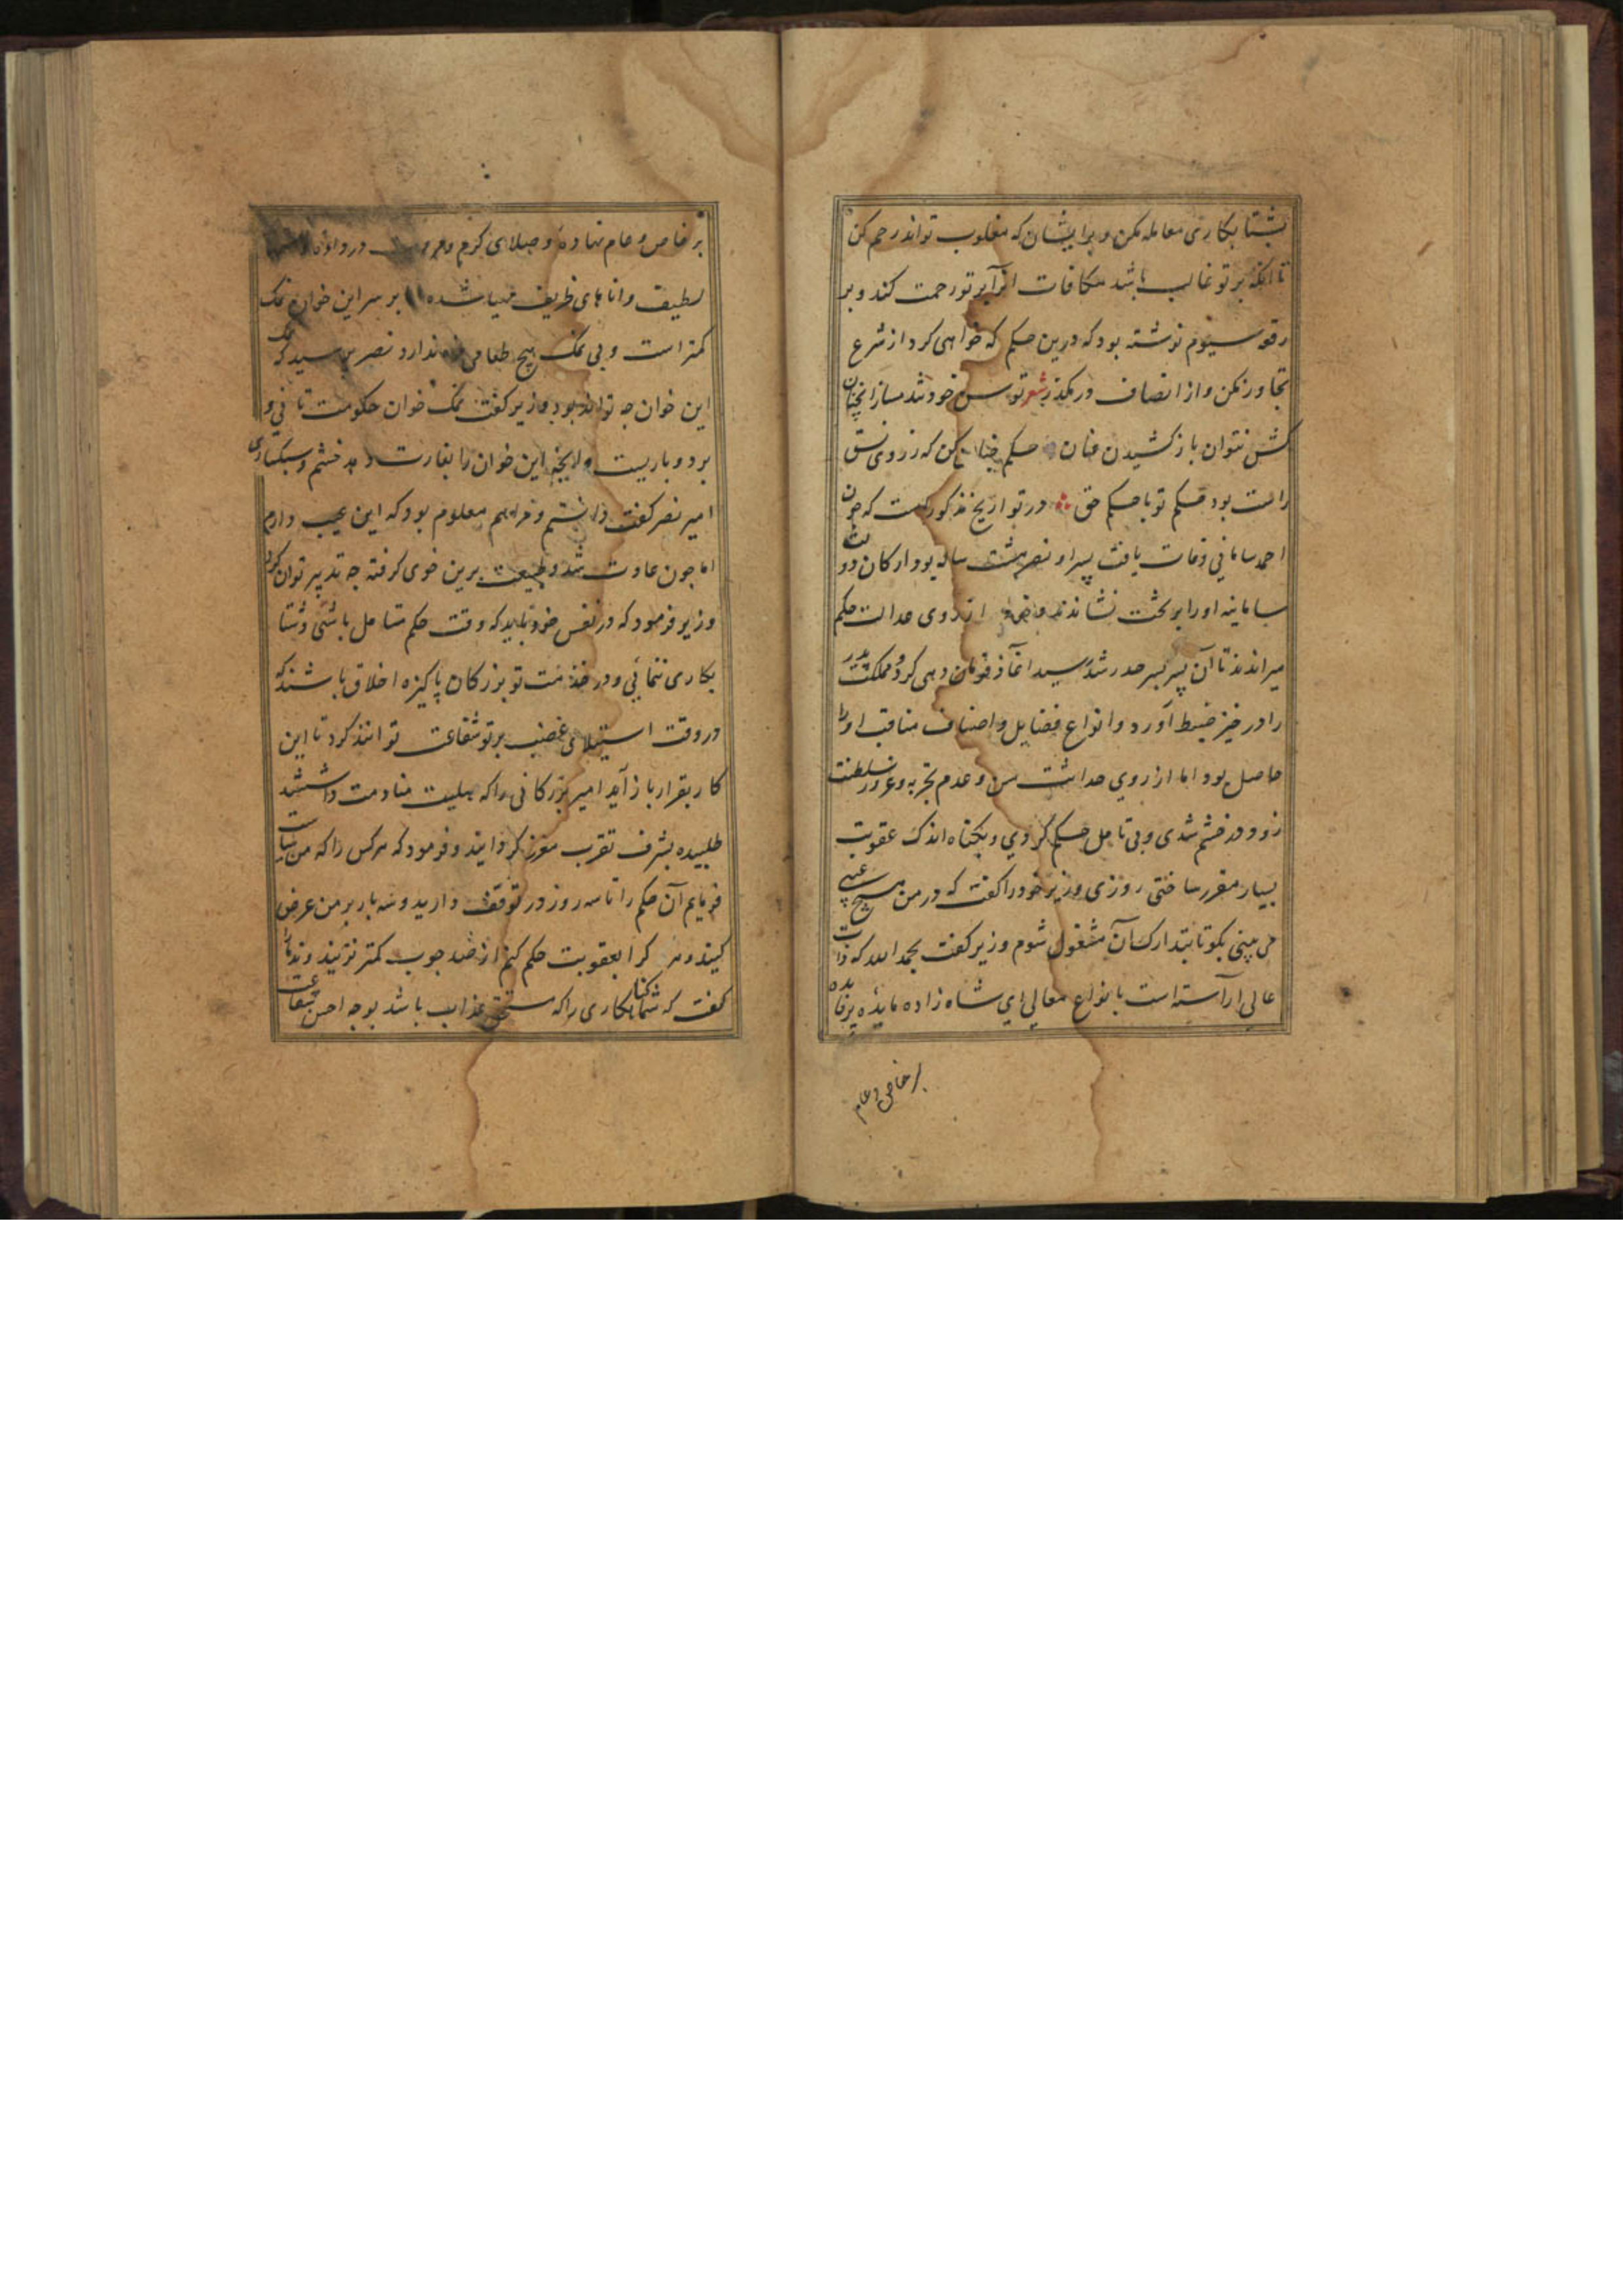 بشتابکاری معامله مکن و برایشان که مغلوب تواند رحم کن
تا آنکه بر تو غالب باشد مکافات آنرا بر تو رحمت کند و بر
رقعه سیوم نوشته بود که درین حکم که خواهی کرد از شرع
تجاوز مکن و از انصاف در مگذر شعر توسن خود تند مساز آنچنان
کش نتوان باز کشیدن عنان حکم چنان کن که ز روی سبق
راست بود حکم تو با حکم حق در تواریخ مذکور است که چون
احمد سامانی وفات یافت پسر او نصر هشت ساله بود ارکان دولت
سامانیه او را بر تخت نشاندند و از روی عدالت حکم
میراندند تا آن پسر بسر حد رشد رسید آغاز فرمان دهی کرد و مملکت پدر
را در حیز ضبط آورد و انواع فضایل و اصناف مناقب او را
حاصل بود اما از روی حداثت سن و عدم تجربه و غرور سلطنت
زود در خشم شدی و بی تامل حکم کردی و بگناه اندک عقوبت
بسیار مقرر ساختی روزی وزیر خود را گفت که در من هیچ عیبی
می بینی بگو تا بتدارک آن مشغول شوم وزیر گفت بحمد الله که ذات
عالی آراسته است بانواع معالی ای شاه زاده مایده پرفایده
بر خاص و عام
بر خاص و عام نهاده و صلای کرم در داده
لطیف و اناهای ظریف مهیا شده اما بر سر این خوان نمک
کمتر است و بی نمک هیچ طعامی مزه ندارد نصر پرسید که نمک
این خوان چه تواند بود وزیر گفت نمک خوان حکومت تانی و
بردباریست و آنچه این خوان را بغارت دهد خشم و سبکساری
امیر نصر گفت دانستم و مرا هم معلوم بود که این عیب دارم
اما چون عادت شد و طبیعت برین خوی گرفته چه تدبیر توان کرد
وزیر فرمود که در نفس خود باید که وقت حکم متامل باشی و شتا
بکاری ننمائی و در خدمت تو بزرگان پاکیزه اخلاق باشند که
در وقت استیلای غضب بر تو شفاعت توانند کرد تا این
کار بقرار باز آید امیر بزرگانی را که صلیت منادمت داشتند
طلبیده بشرف تقرب معزز گردانید و فرمود که هر کس را که من سیاست
فرمایم آن حکم را تا سه روز در توقف دارید و سه بار بر من عرض
کنید و هر کرا بعقوبت حکم کنم از صد چوب کمتر نزنید و ندما را
گفت که شما گناهکاری را که مستحق عذاب باشد بوجه احسن شفاعت